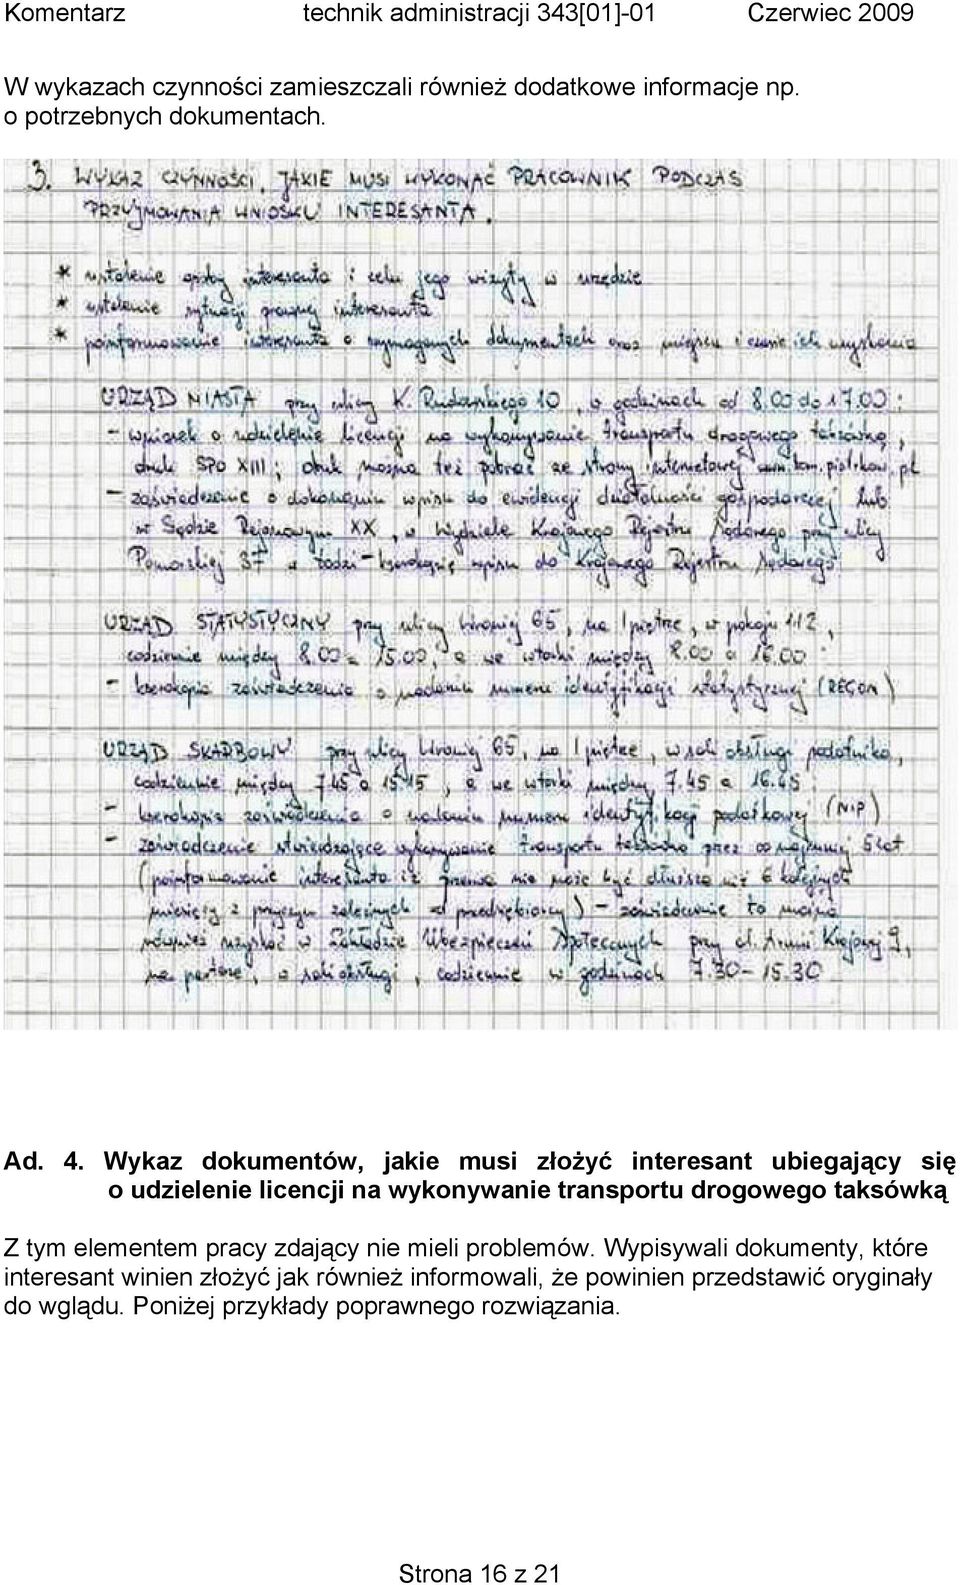 Komentarz technik administracji 343[01]-01 Czerwiec 2009
W wykazach czynności zamieszczali również dodatkowe informacje np.
o potrzebnych dokumentach.
3. WYKAZ CZYNNOŚCI, JAKIE MUSI WYKONAĆ PRACOWNIK PODCZAS
PRZYJMOWANIA WNIOSKU INTERESANTA.
* ustalenie osoby interesanta i celu jego wizyty w urzędzie
* ustalenie sytuacji prawnej interesanta
* poinformowanie interesanta o wymaganych dokumentach oraz miejscu i czasie ich uzyskania
URZĄD MIASTA przy ulicy K. Rudowskiego 10, w godzinach od 8.00 do 17.00:
- wniosek o udzielenie licencji na wykonywanie transportu drogowego taksówką,
druk SPO XIII; druk można też pobrać ze strony internetowej
- zaświadczenie o dokonaniu wpisu do ewidencji działalności gospodarczej lub
w Sądzie Rejonowym XX, w Wydziale Krajowego Rejestru Sądowego przy ulicy
Pomorskiej 37 w Łodzi - kserokopię wpisu do Krajowego Rejestru Sądowego
URZĄD STATYSTYCZNY przy ulicy Wroniej 65, na I piętrze, w pokoju 112,
codziennie między 8.00 a 15.00, a we wtorki między 8.00 a 16.00:
- kserokopia zaświadczenia o nadaniu numeru identyfikacji statystycznej (REGON)
URZĄD SKARBOWY przy ulicy Wroniej 65, na I piętrze, w sali obsługi podatnika,
codziennie między 7.45 a 15.15, a we wtorki między 7.45 a 16.45:
- kserokopia zaświadczenia o nadaniu numeru identyfikacji podatkowej (NIP)
- zaświadczenie stwierdzające wykonywanie transportu taksówką przez co najmniej 5 lat
(poinformowanie interesanta iż przerwa nie może być dłuższa niż 6 kolejnych
miesięcy z przyczyn zależnych od przedsiębiorcy) - zaświadczenie to można
również uzyskać w Zakładzie Ubezpieczeń Społecznych przy al. Armii Krajowej 9,
na parterze, w sali obsługi, codziennie w godzinach 7.30-15.30
Ad. 4. Wykaz dokumentów, jakie musi złożyć interesant ubiegający się
o udzielenie licencji na wykonywanie transportu drogowego taksówką
Z tym elementem pracy zdający nie mieli problemów. Wypisywali dokumenty, które
interesant winien złożyć jak również informowali, że powinien przedstawić oryginały
do wglądu. Poniżej przykłady poprawnego rozwiązania.
Strona 16 z 21